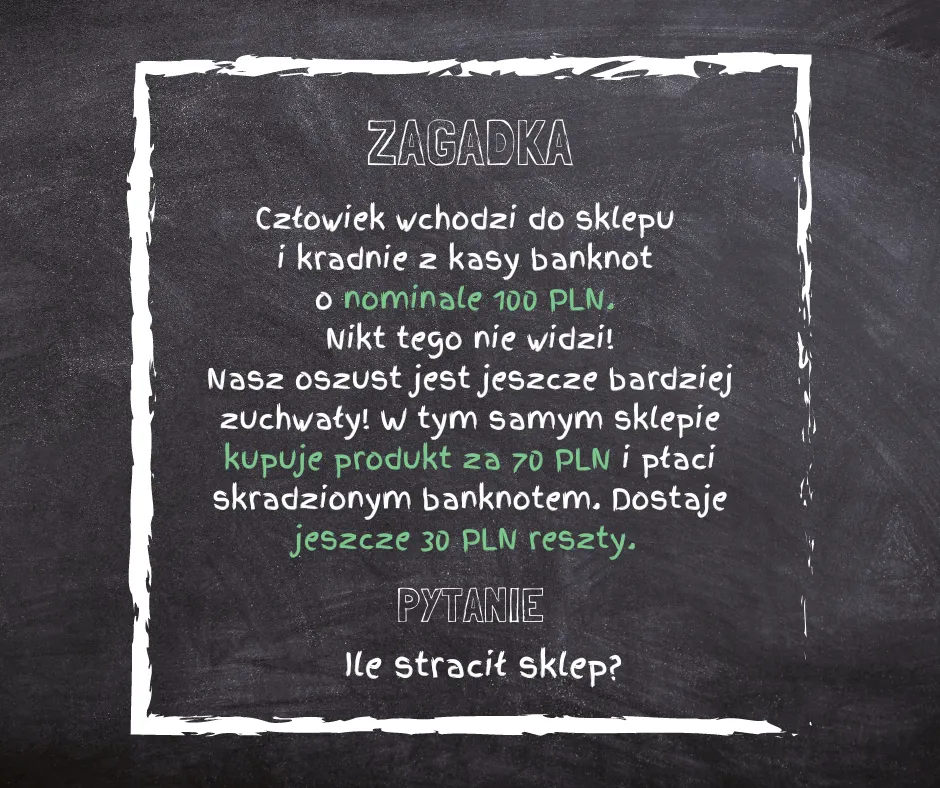 ZAGADKA
Człowiek wchodzi do sklepu
i kradnie z kasy banknot
o nominale 100 PLN.
Nikt tego nie widzi!
Nasz oszust jest jeszcze bardziej
zuchwały! W tym samym sklepie
kupuje produkt za 70 PLN i płaci
skradzionym banknotem. Dostaje
jeszcze 30 PLN reszty.
PYTANIE
Ile stracił sklep?